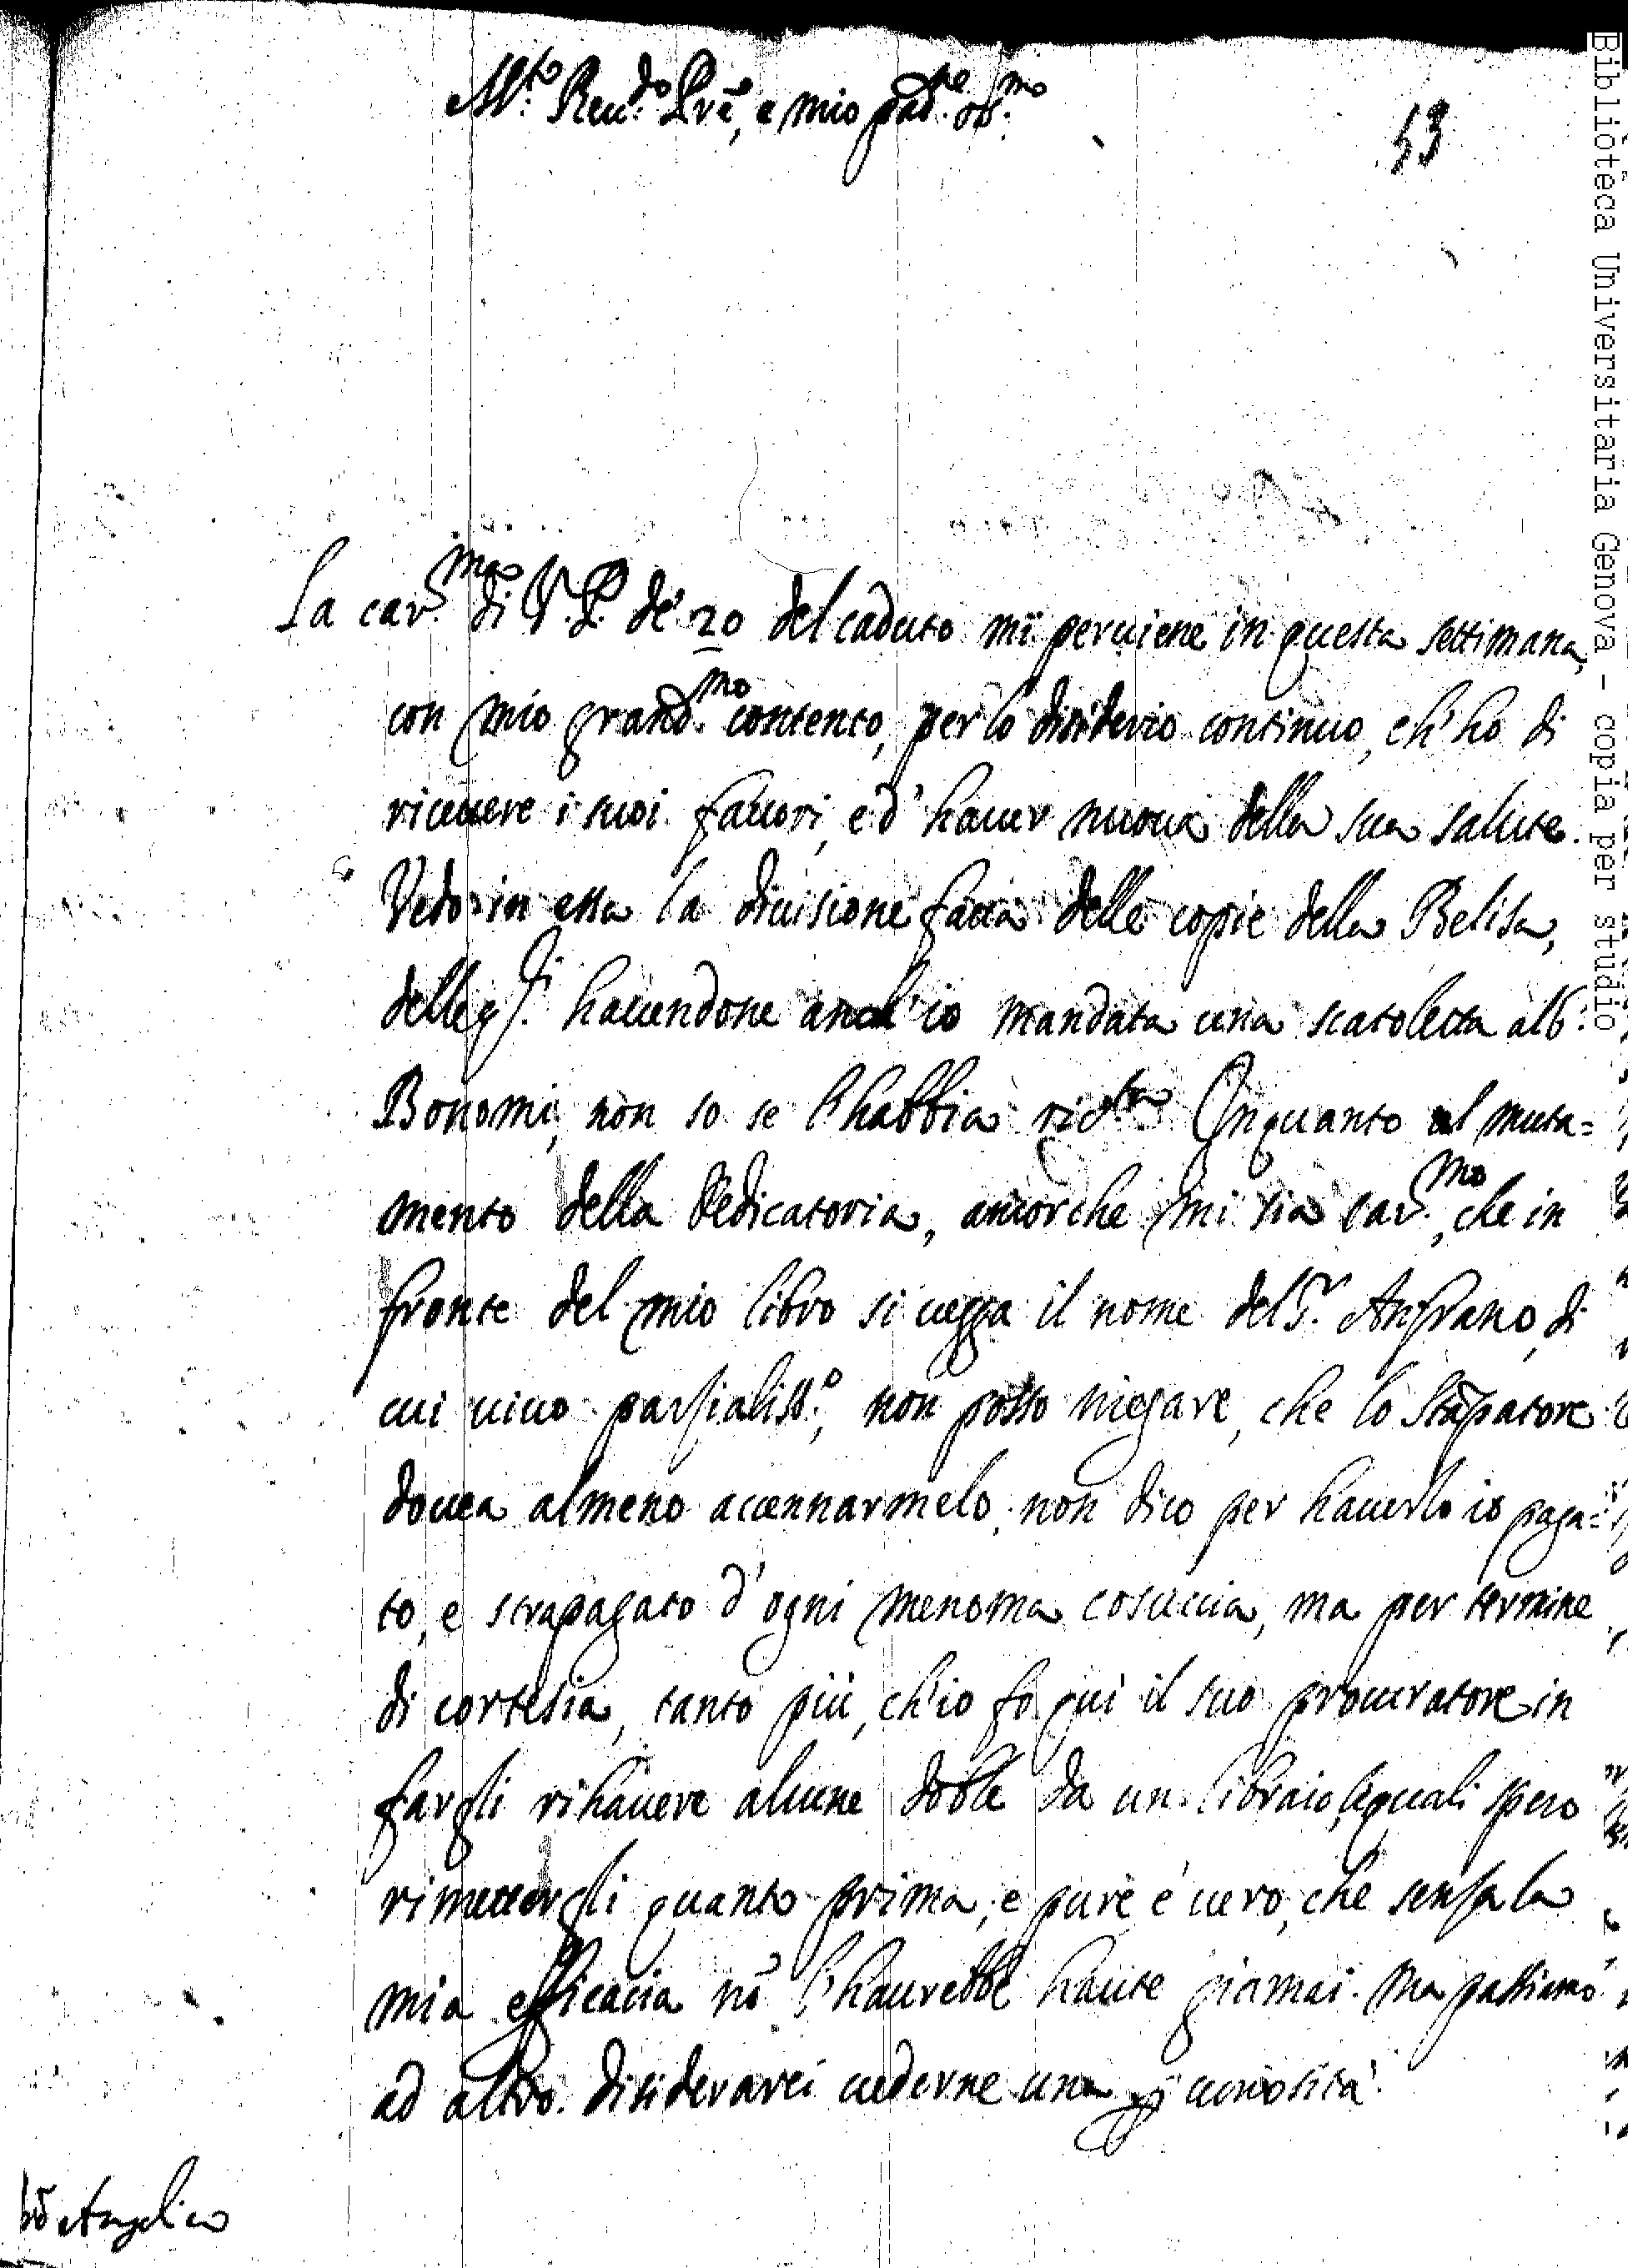 M.to Reu.do Prē, e mio pad.ne oss.mo
53
La car.ma di V. P. de' 20 del caduto mi peruiene in questa settimana,
con mio grand.mo contento, per lo disiderio continuo, ch'ho di
riceuere i suoi fauori, ed' hauer nuoua della sua salute.
Vedo in essa la diuisione fatta delle copie della Belisa,
delle q.li hauendone anch'io mandata una scatoletta al S.
Bonomi, non so se l'habbia ric.ta Inquanto al muta=
mento della dedicatoria, ancorche mi sia car.mo, che in
fronte del mio libro si uegga il nome del S.r Ansrano, di
cui uiuo parzialiss.o, non posso niegare, che lo Stāpatore
douea almeno accennarmelo, non dico per hauerlo io paga=
to, e strapagato d'ogni menoma cosuccia, ma per termine
di cortesia, tanto più, ch'io fo qui il suo procuratore in
fargli rihauere alcune doble da un libraio, le quali spero
rimettergli quanto prima, e pure è uero, che senza la
mia efficacia nō l'haurebbe hauute giamai. Ma passiamo
ad altro. Disiderarei uederne una p curiosità.
Angelico
Biblioteca Universitaria Genova - copia per studio